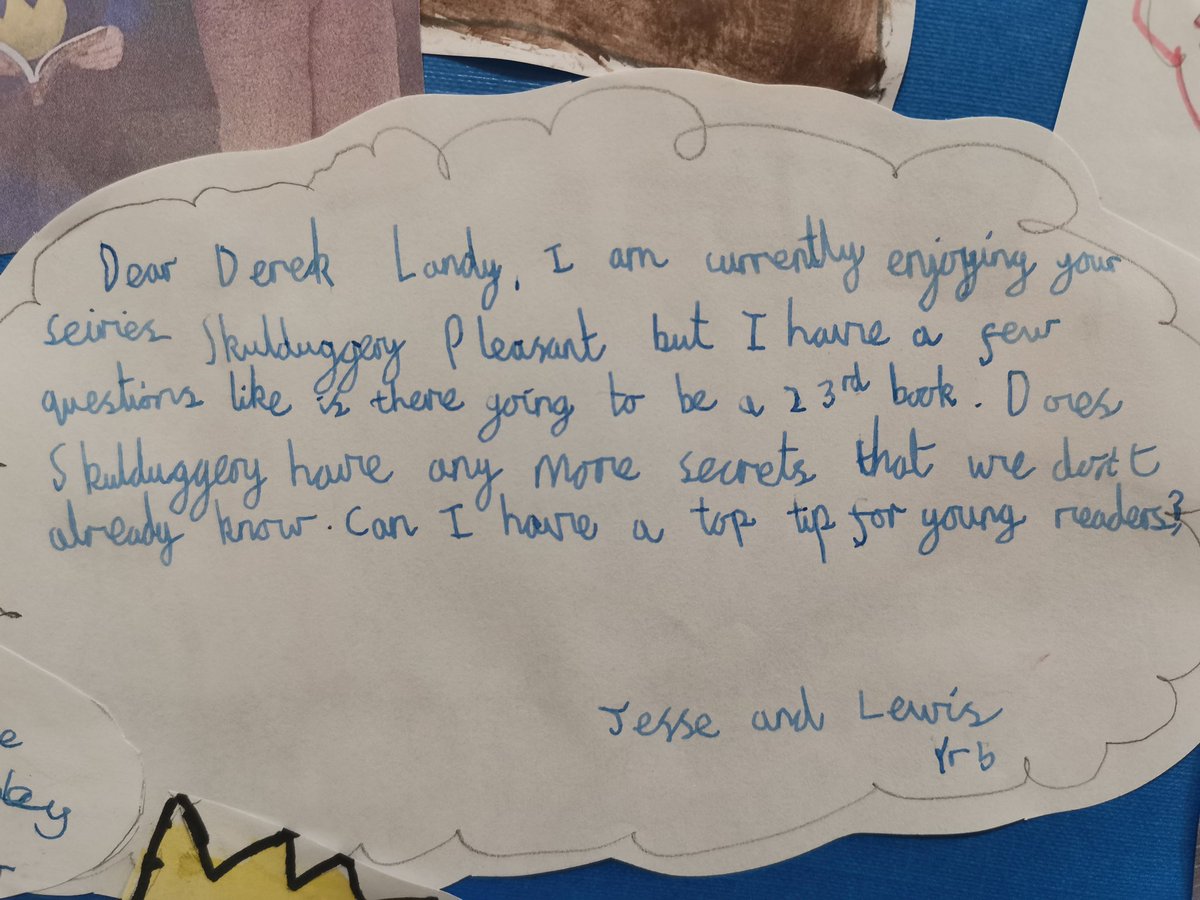 Dear Derek Landy, I am currently enjoying your
seiries Skulduggery Pleasant but I have a few
questions like is there going to be a 23rd book. Does
Skulduggery have any more secrets that we don't
already know. Can I have a top tip for young readers?
Jesse and Lewis
Yr 6